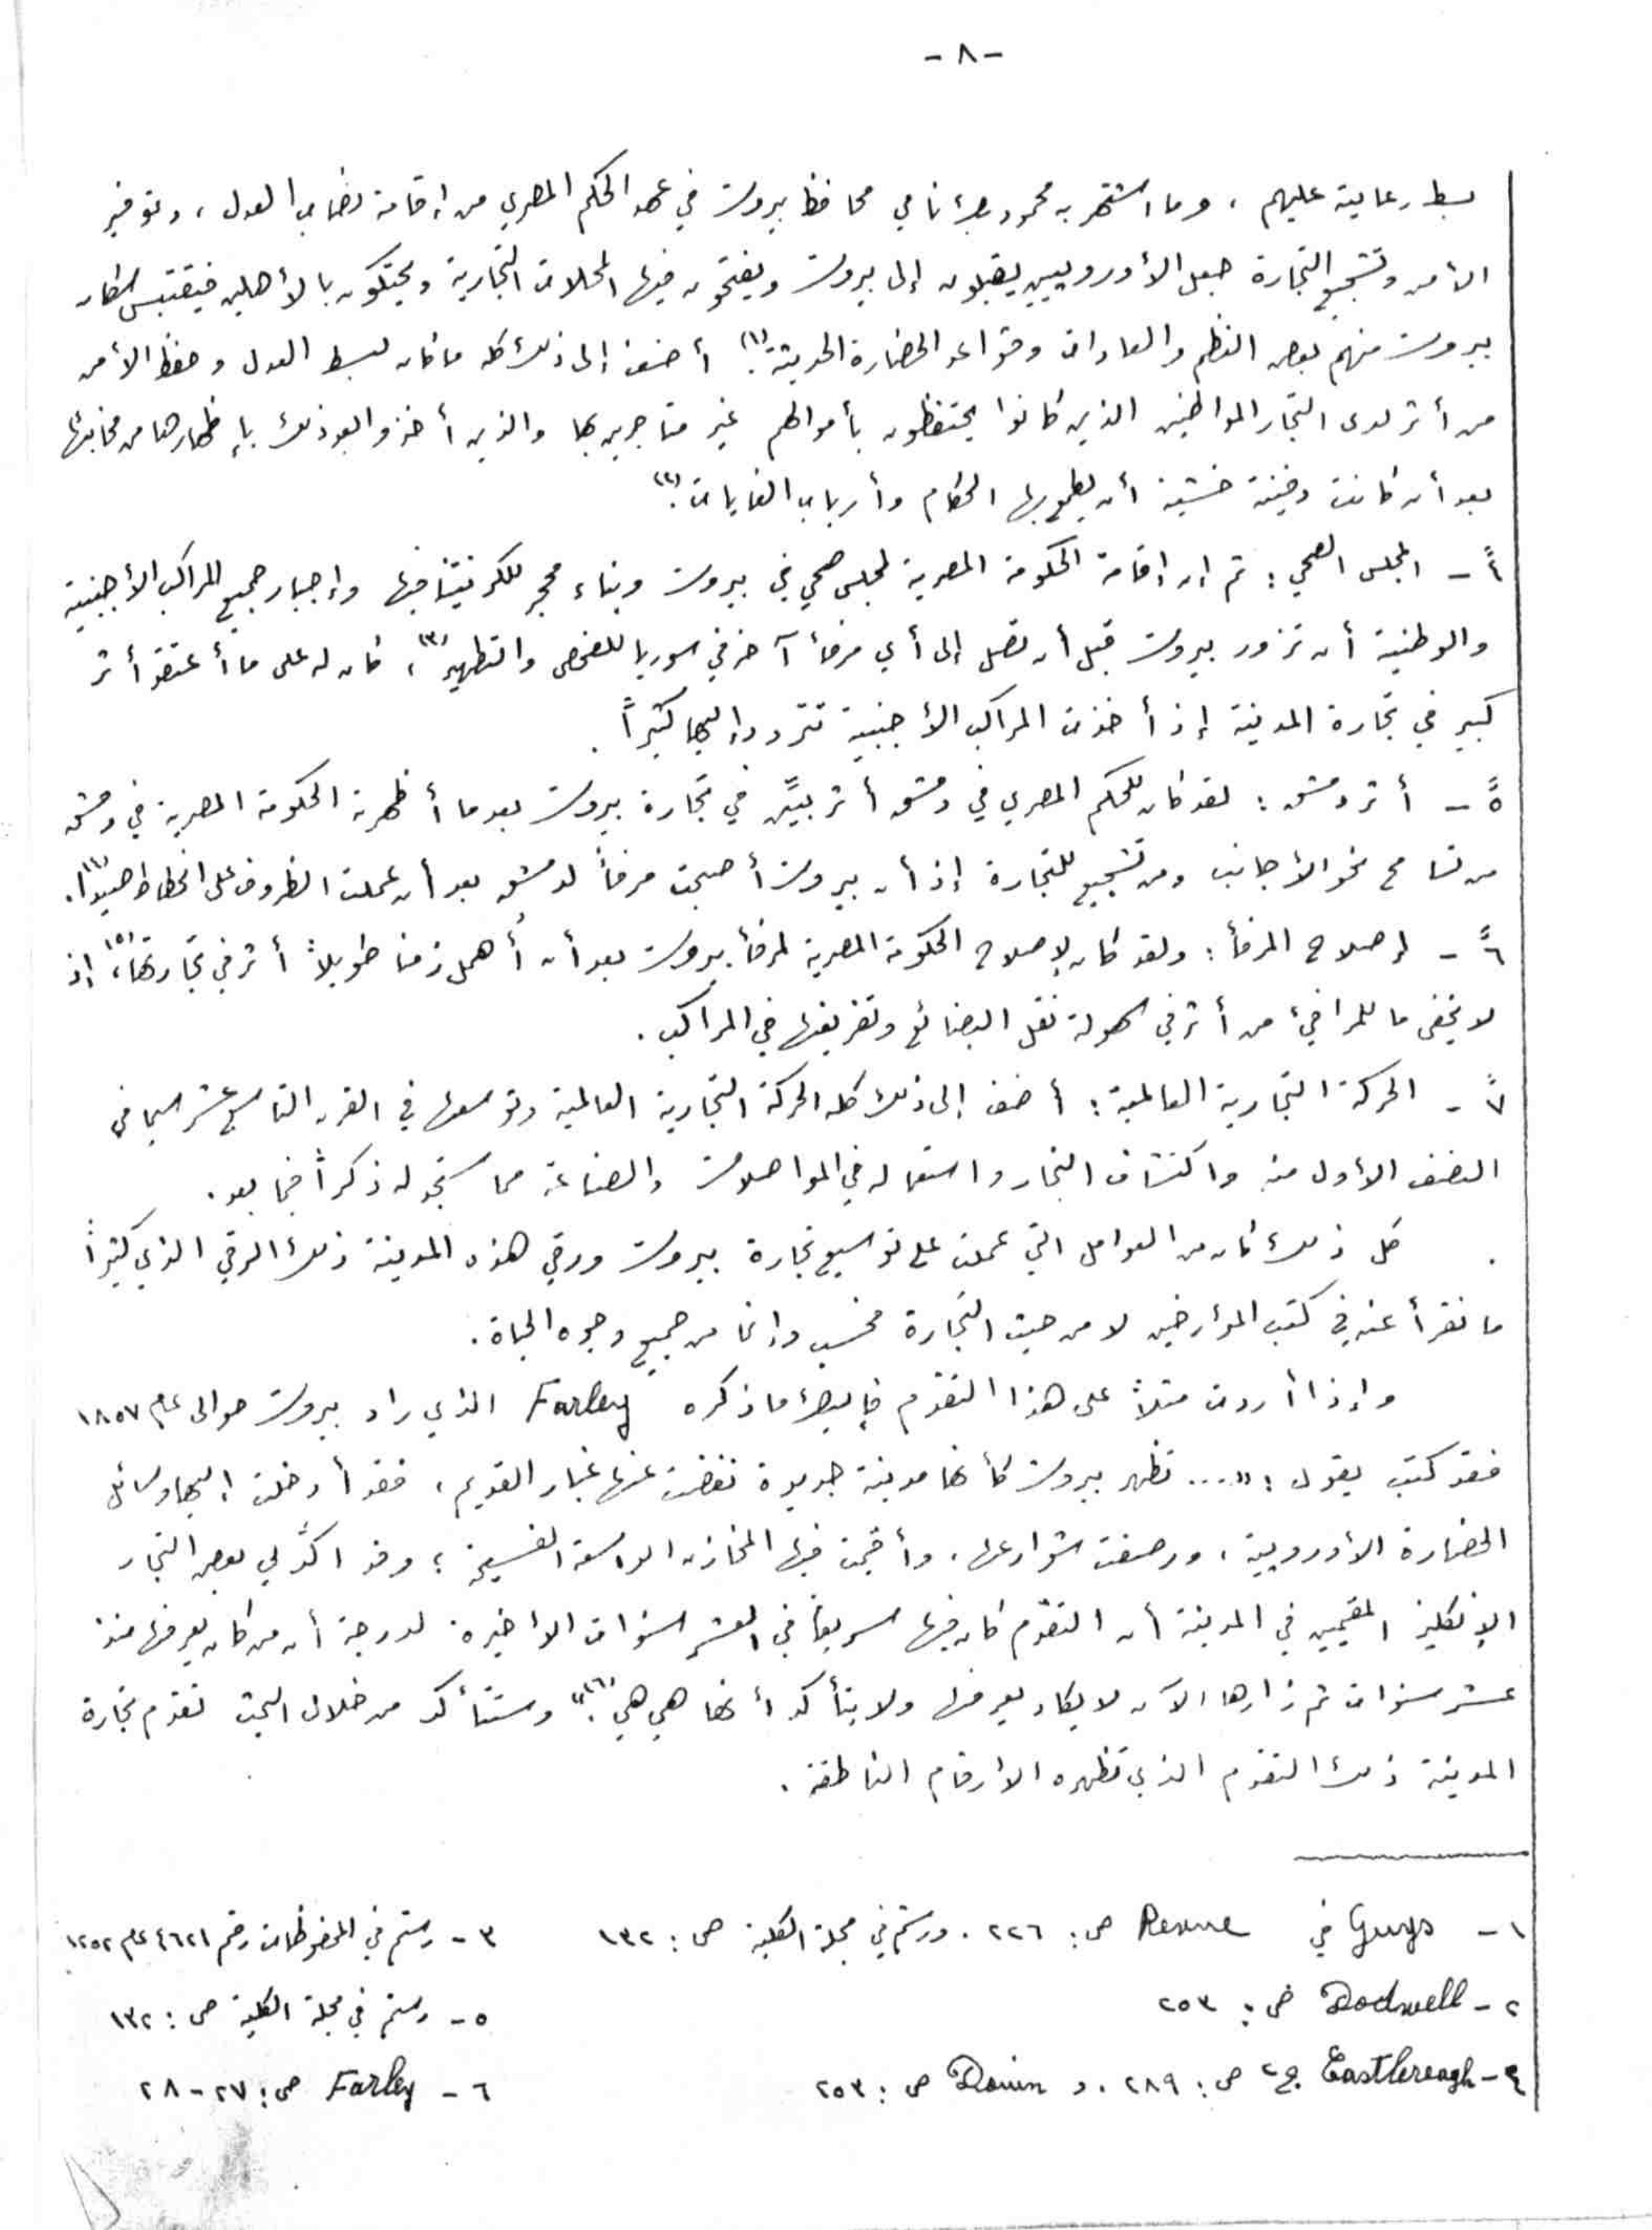 -٨-
بسط رعايته عليهم ، وما اشتهر به محمود بك نامي محافظ بيروت في عهد الحكم المصري من إقامة نصاب العدل ، وتوفير
الأمن وتشجيع التجارة جعل الأوروبيين يقبلون إلى بيروت ويفتحون فيها المحلات التجارية ويحتكون بالأهلين فيقتبس سكان
بيروت منهم بعض النظم والعادات وقواعد الحضارة الحديثة (١). أضف إلى ذلك كله ما كان لبسط العدل وحفظ الأمن
من أثر لدى التجار المواطنين الذين كانوا يحتفظون بأموالهم غير متاجرين بها والذين أخذوا بعد ذلك بإظهارها من مخابئها
بعد أن كانت دفينة خشية أن يطمع بها الحكام وأرباب الغايات (٢).
٤ً - المجلس الصحي : ثم إن إقامة الحكومة المصرية لمجلس صحي في بيروت وبناء محجر للكرنتينا فيها وإجبار جميع المراكب الأجنبية
والوطنية أن تزور بيروت قبل أن تصل إلى أي مرفأ آخر في سوريا للفحص والتطهير (٣) ، كان له على ما أعتقد أثر
كبير في تجارة المدينة إذ أخذت المراكب الأجنبية تتردد إليها كثيراً .
٥ً - أثر دمشق : لقد كان للحكم المصري في دمشق أثر بيّن في تجارة بيروت بعدما أظهرته الحكومة المصرية في دمشق
من تسامح نحو الأجانب ومن تشجيع للتجارة إذ أن بيروت أصبحت مرفأً لدمشق بعد أن عملت الظروف على انحطاط صيدا (٤).
٦ً - إصلاح المرفأ : ولقد كان لإصلاح الحكومة المصرية لمرفأ بيروت بعد أن أُهمل زمنا طويلاً أثر في تجارتها (٥)، إذ
لا يخفى ما للمرافئ من أثر في سهولة نقل البضائع وتفريغها في المراكب .
٧ً - الحركة التجارية العالمية : أضف إلى ذلك كله الحركة التجارية العالمية وتوسعها في القرن التاسع عشر سيما في
النصف الأول منه واكتشاف البخار واستعماله في المواصلات والصناعة مما سنجد له ذكراً فيما بعد .
كل ذلك كان من العوامل التي عملت على توسيع تجارة بيروت ورقي هذه المدينة ذلك الرقي الذي كثيراً
ما نقرأ عنه في كتب المؤرخين لا من حيث التجارة فحسب وإنما من جميع وجوه الحياة .
وإذا أردت مثلاً على هذا التقدم فإليك ما ذكره Farley الذي زار بيروت حوالى عام ١٨٥٧
فقد كتب يقول : « ... تظهر بيروت كأنها مدينة جديدة نفضت عنها غبار القديم ، فقد أدخلت إليها وسائل
الحضارة الأوروبية ، ورصفت شوارعها ، وأقيمت فيها المخازن الواسعة الفسيحة ؛ وقد اكّد لي بعض التجار
الإنكليز المقيمين في المدينة أن التقدّم كان فيها سريعاً في العشر سنوات الأخيرة لدرجة أن من كان يعرفها منذ
عشر سنوات ثم زارها الآن لا يكاد يعرفها ولا يتأكد أنها هي هي (٦).» وسنتأكد من خلال البحث تقدم تجارة
المدينة ذلك التقدم الذي تظهره الارقام الناطقة .
١ - Guys في Revue ص : ٢٢٦ . ورستم في مجلة الكلية ص : ١٣٢
٢ - Dodwell ص : ٢٥٣
٤ - Eastlereagh ج ٢ ص : ٢٨٩ . و Douin ص : ٢٥٣
٣ - رستم في المحفوظات رقم ٤٦٢١ عام ١٢٥٢
٥ - رستم في مجلة الكلية ص : ١٣٢
٦ - Farley ص : ٢٧ - ٢٨